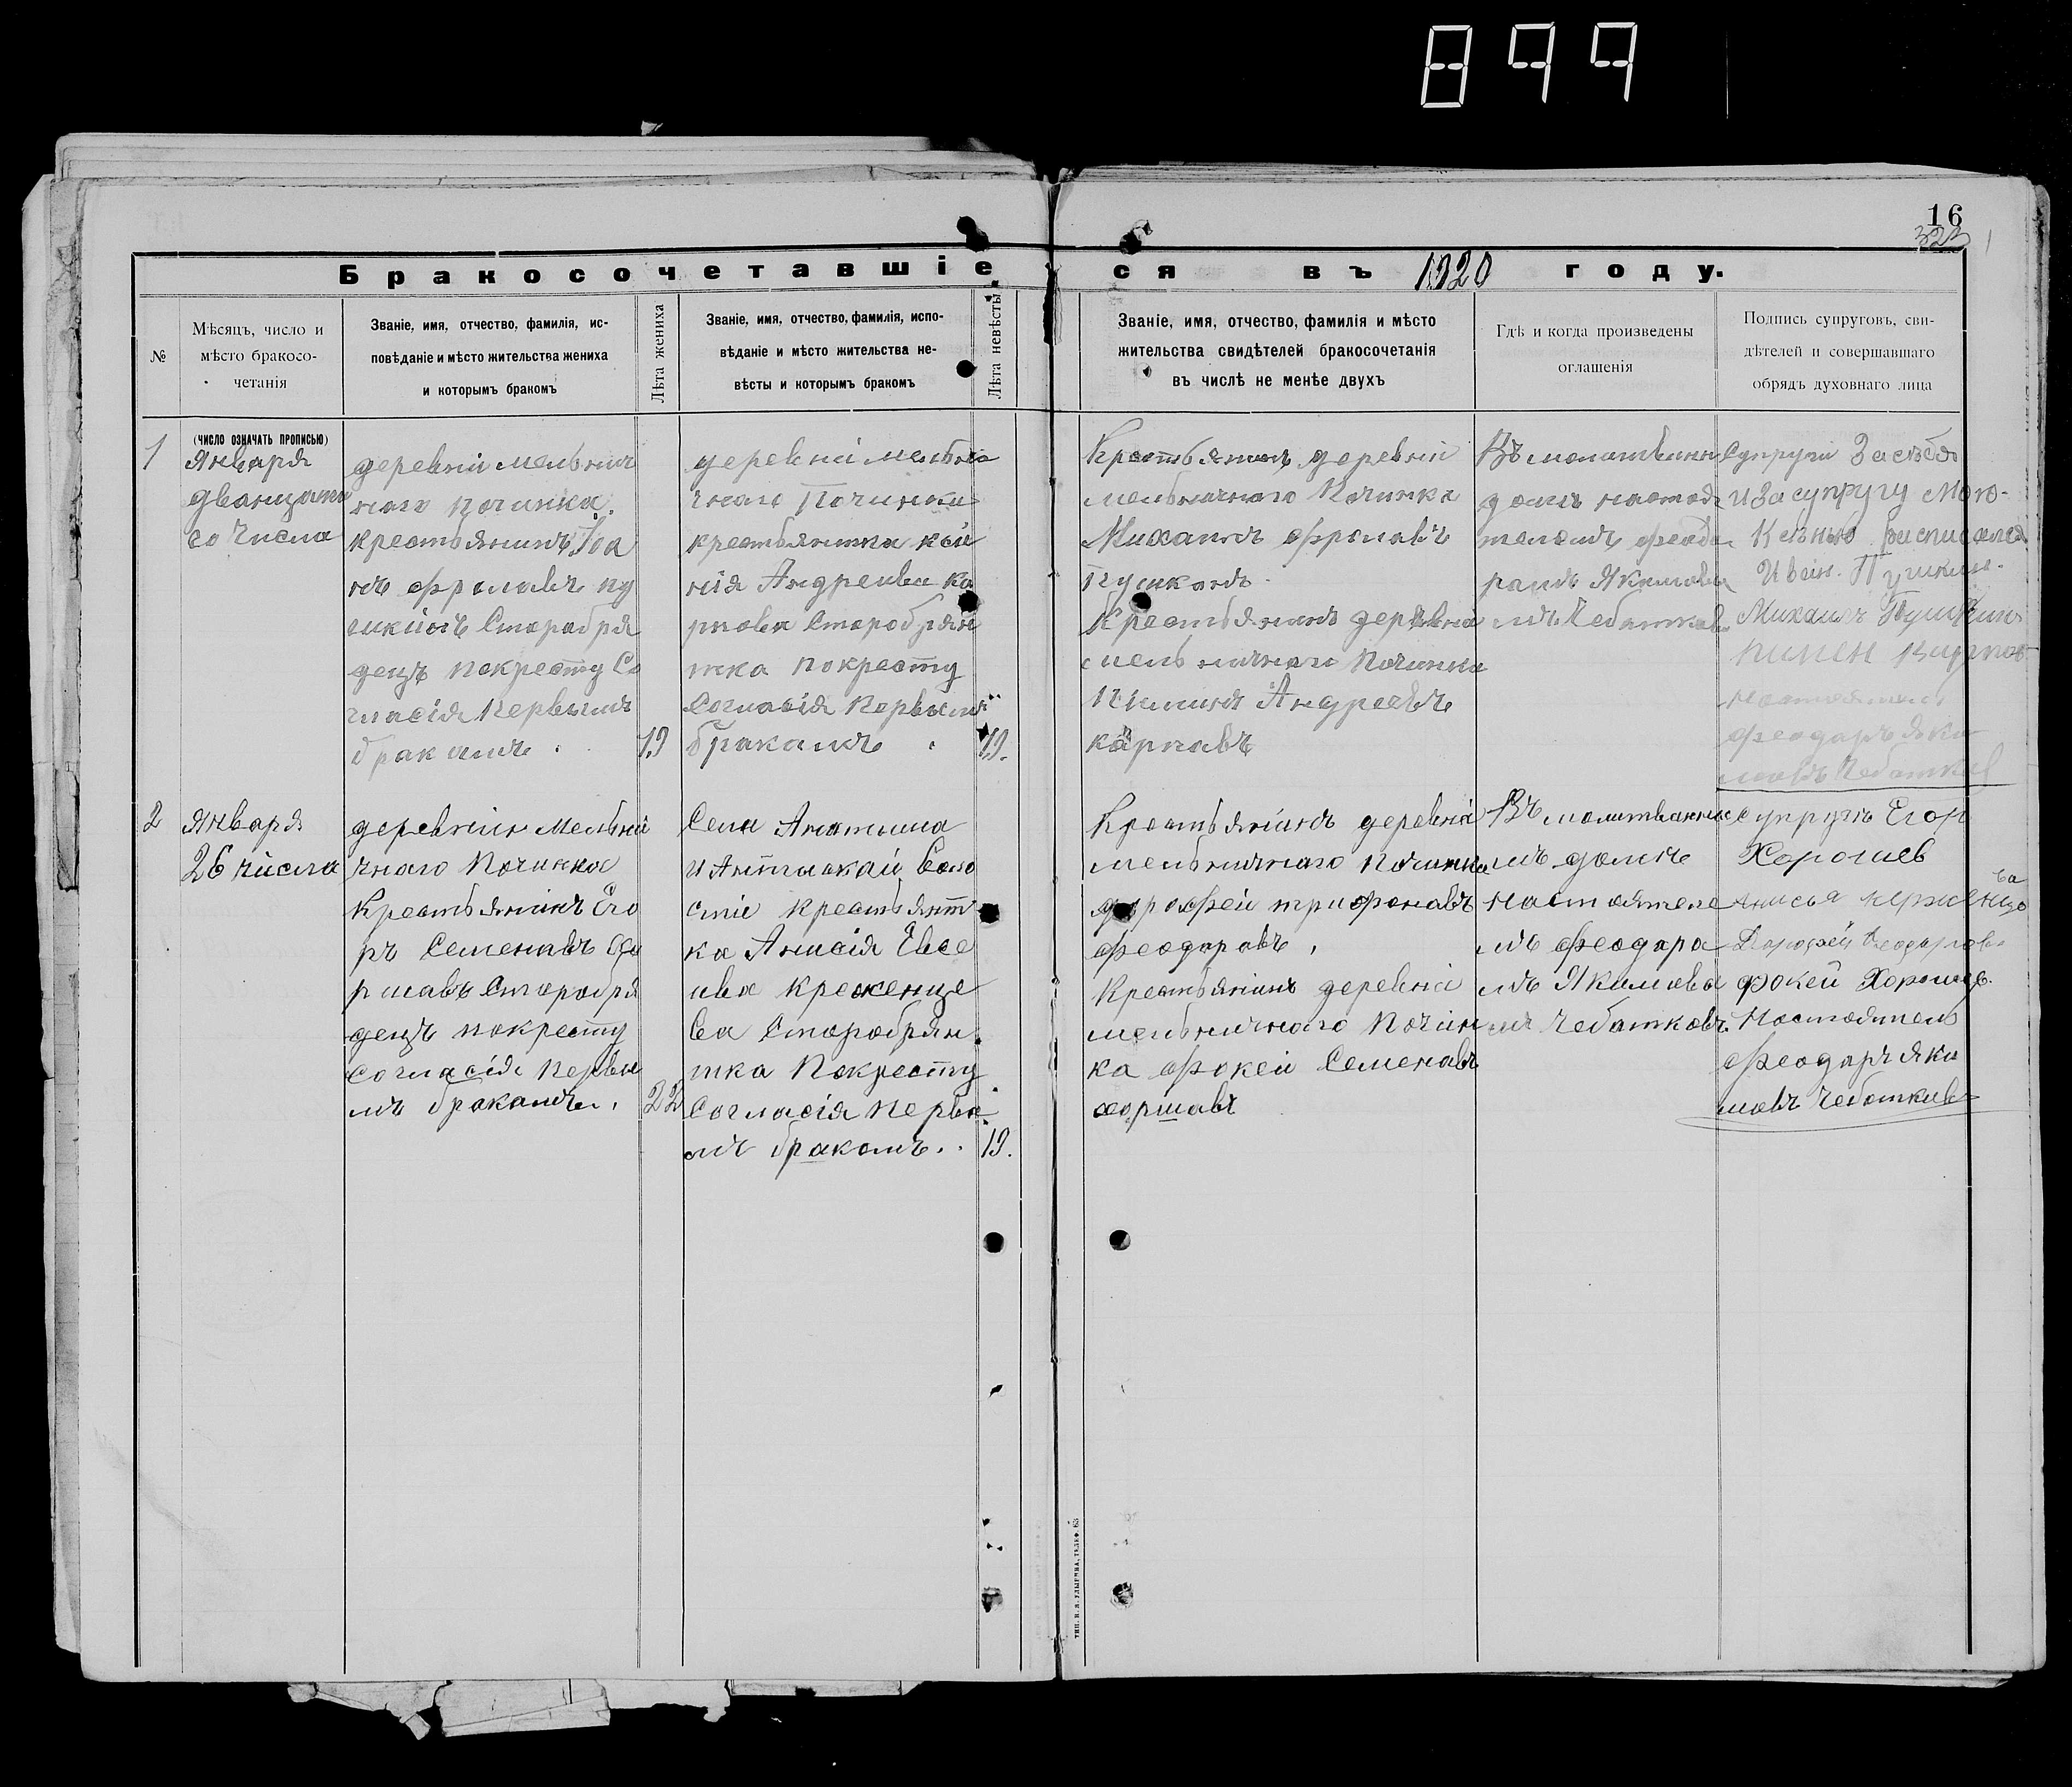 899
16
323
Бракосочетавшіеся въ 1920 году.
№
Мѣсяцъ, число и
мѣсто бракосо-
четанія
Званіе, имя, отчество, фамилія, ис-
повѣданіе и мѣсто жительства жениха
и которымъ бракомъ
Лѣта жениха
Званіе, имя, отчество, фамилія, испо-
вѣданіе и мѣсто жительства не-
вѣсты и которымъ бракомъ
Лѣта невѣсты
Званіе, имя, отчество, фамилія и мѣсто
жительства свидѣтелей бракосочетанія
въ числѣ не менѣе двухъ
Гдѣ и когда произведены
оглашенія
Подпись супруговъ, сви-
дѣтелей и совершавшаго
обрядъ духовнаго лица
1
(число означать прописью)
Января
дванцата
го числа
деревніи мельнич
наго Починка
крестьянинъ Іоа
нъ Фролавъ пу
шкінъ Старобря
децъ покресту Со
гласія Первымъ
бракамъ.
19
деревні мельни
чнаго Починки
крестьянтка
нія Андреива Ка
рпова Старобрян
тка покресту
Согласія Первымъ
бракамъ.
19.
Крестьянинъ деревніи
мельничнаго Починка
Михаилъ Фролавъ
Пушкинъ.
Крестьянинъ деревни
мельничнаго Починка
Пиминъ Андреевъ
карпавъ
Въ молитвинн
домъ настоя
телемъ Феода
рамъ Якимавы
мъ Чебатков
Супруги За себя
и За супругу Мою-
Ксѣнью расписался
Иван. Пушкин.
Михаилъ Пушкин
Пимен Карпов
Настоятель
Феодаръ Яки
мовъ Чебаткив
2
января
26 числа
деревніи Мельни
чнаго Починка
Крестьянинъ Его
ръ Семенавъ
ршавъ Старобря
децъ покресту
Согласія Первы
мъ бракамъ.
22
Села Анатыша
и Волο
стіи крестьянт
ка Анисія Евсе
ива креженце
ва Старобрян
тка Покресту
Согласія Первы
мъ бракомъ.
19.
Крестьянинъ деревні
мельничнаго Починка
дорофеи трифонавъ
Феодаравъ,
Крестьянинъ деревні
мельничнаго Почин
ка Фокеи Семенавъ
хоршавъ
Въ молитванна
мъ домъ
Настоятеле
мъ Феодара
мъ Якимовы
мъ Чебатковъ.
супругъ Егор
Хорошев
Анисья керженцо
ва
Дорофей Феодоров
Фокеи Хорошев.
Настоятель
Феодаръ Яки
мавъ Чебаткив